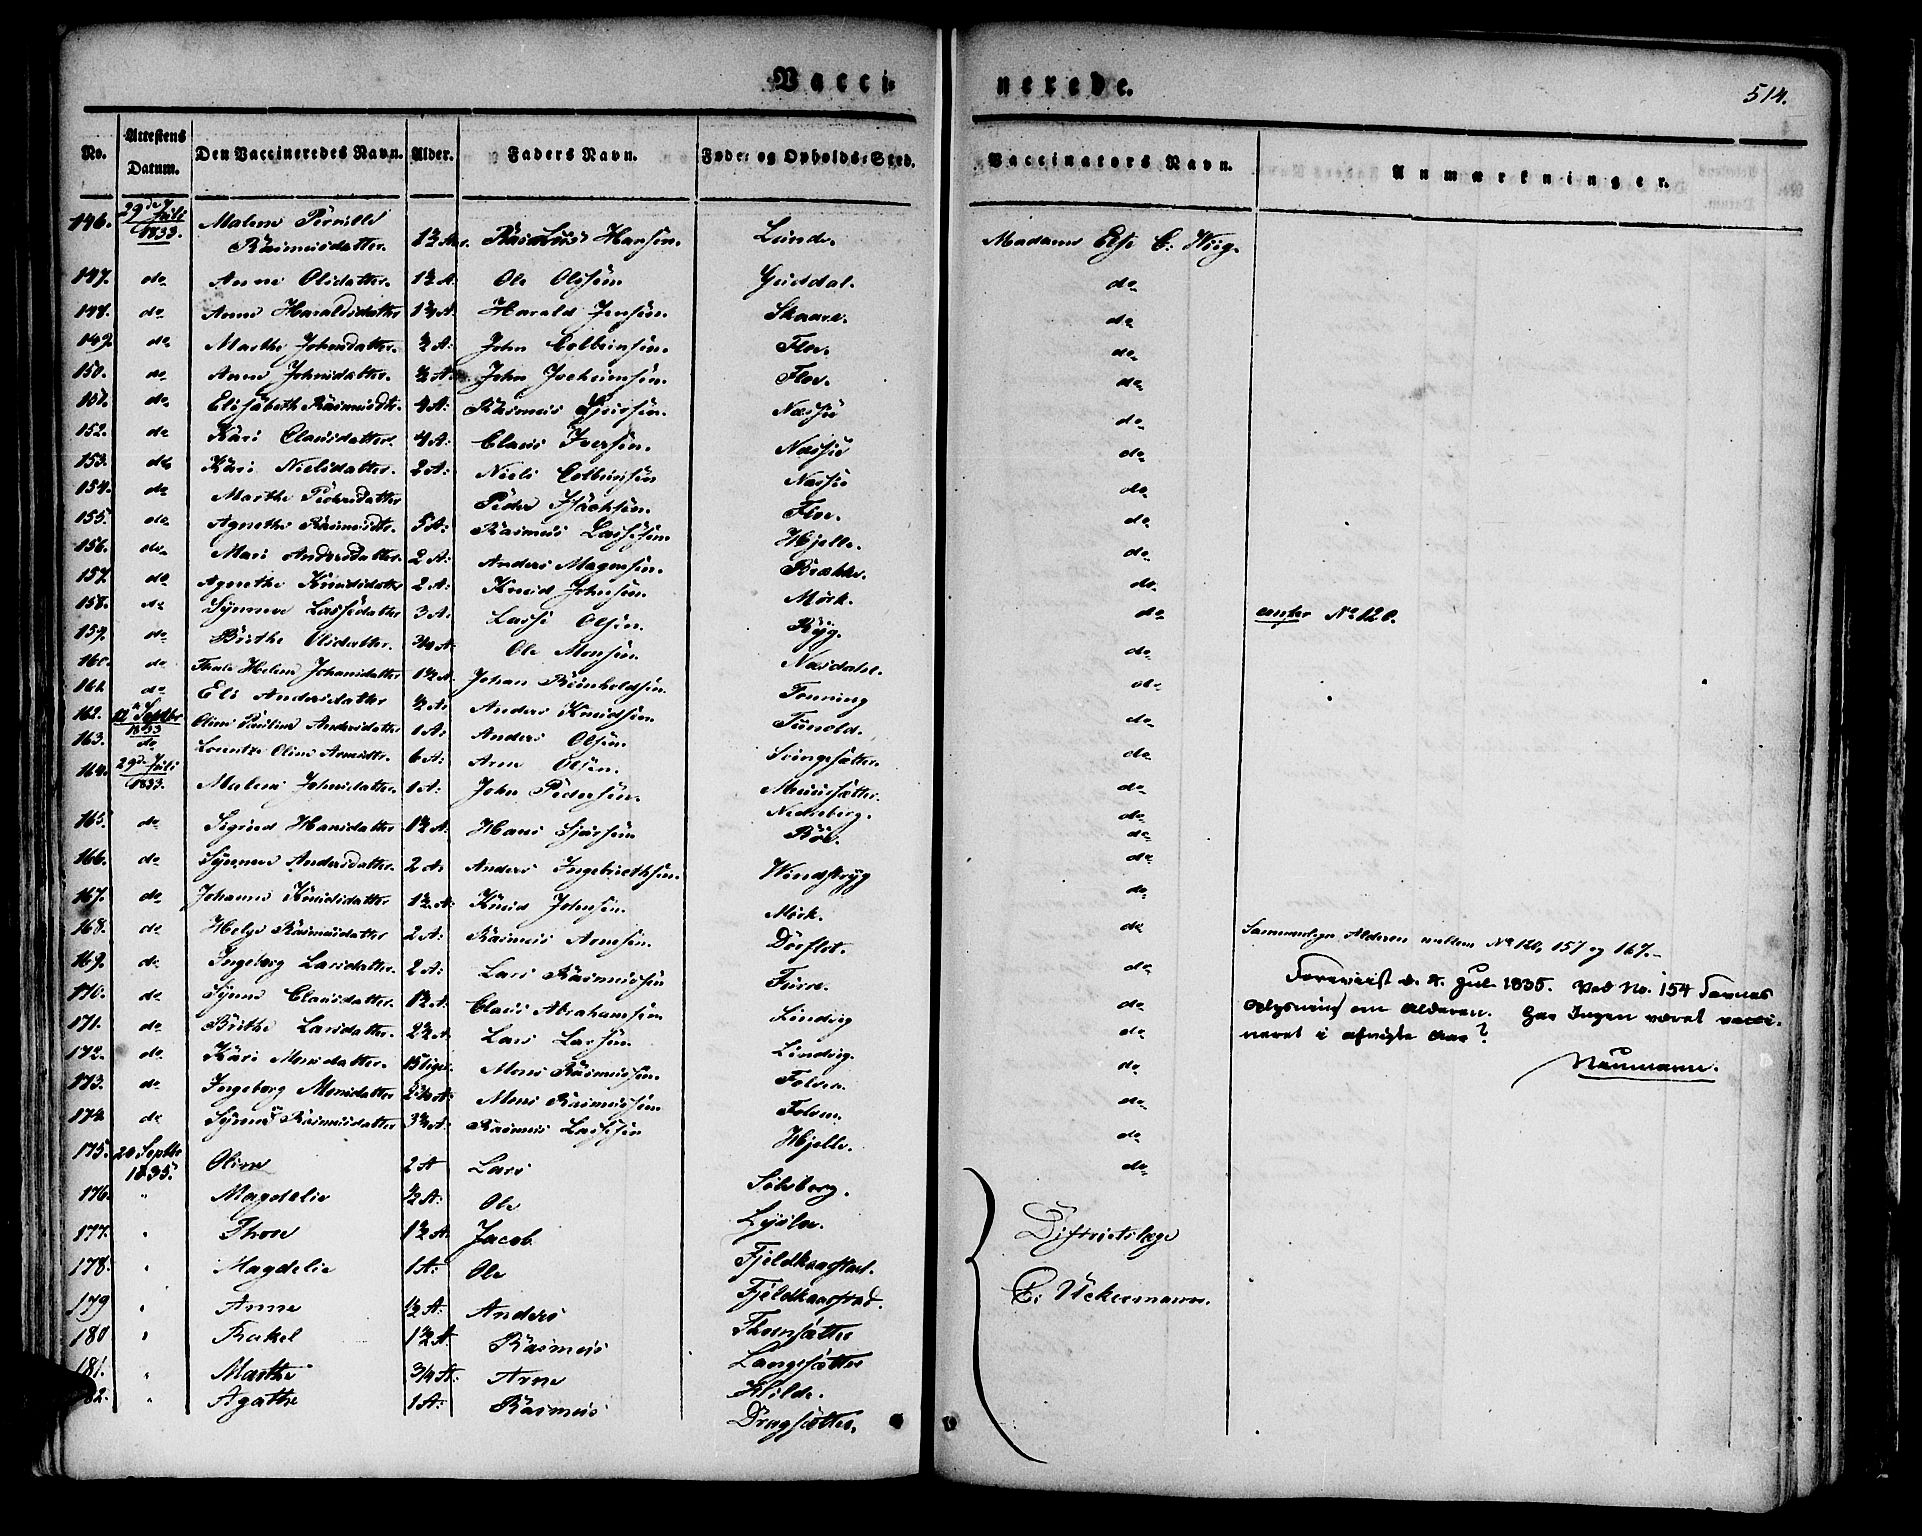 Vacci- nerede. 514.
No. Attestens Datum. Den Vaccineredes Navn. Alder. Faders Navn. Føde- og Opholds-Sted. Vaccinators Navn. Anmærkninger.
146. 29de Juli 1833. Malene Pernille Rasmusdatter 1½ A. Rasmus Hansen. Lunde. Madame Else C: Wiig.
147. do Anne Olsdatter. 1½ A. Ole Olsen. Guddal. do
148. do Anne Haraldsdatter A. Harald Jensen. Skaare. do
149. do Marthe Johnsdatter. ½ A: John Colbeinsen. Floe. do
150. do Anne Johnsdatter. ½ A. John Jocheimsen. Floe. do
151. do Elisabeth Rasmusdtr. 4 A: Rasmus Næsse do
152. do Kari Clausdatter. 4 A: Claus Iversen. Næsse do
153. do Kari Nielsdatter. 2 A: Niels Colbeinsen Næsse do
154. do Marthe Pedersdatter Peder Floe. do
155. do Agnethe Rasmusdtr. 5 A: Rasmus Lassesen. Hjelle. do
156. do Mari Andersdatter. 2 A: Anders Magnesen. Brække. do
157. do Agnethe Knudsdatter 2 A: Knud Johnsen. Mörk. do
158. do Synneve Lassedatter 3 A: Lasse Olsen. Ryg. do confer No 120.
159. do Birthe Olsdatter. 3/4 A. Ole Monsen. Nasdahl. do
160. do Helene Johansdatter 1½ A. Johan Reinholdsen. Tonning do
161. do Eli Andersdatter ½ A: Anders Knudsen. Tunold. do
162. 12 Septbr 1833 Oline Pauline Andersdatter 1 A: Anders Olsen. Svingesætter. do
163. do Lorentze Oline Arnesdtr. 6 A: Arne Olsen. Muusætter. do
164. 29de Juli 1833. Malene Johnsdatter. 1 A: John Pedersen. Nedreberg. do
165. do Sigrid Hansdatter 1½ A: Hans Sjursen Böe. do
166. do Synneve Andersdatter. 2 A: Anders Ingebrethsen. Windsryg do
167. do Johanne Knudsdatter 1½ A: Knud Johnsen. Mörk. do
168. do Helge Rasmusdatter 2 A: Rasmus Arnesen. Dörflot. do Sammenlign Alderen mellem No 120, 157 og 167.-
169. do Ingeborg Larsdatter. 2 A: Lars Rasmussen Fure. do
170. do Synne Clausdatter. 1½ A. Claus Abrahamsen Lindvig do
171. do Birthe Larsdatter. 2½ A. Lars Larsen. Lindvig. do
172. do Kari Monsdatter. Mons Rasmussen. Folven. do
173. do Ingeborg Monsdatter A: Mons Rasmussen. Folven. do
174 do Synneve Rasmusdatter A: Rasmus Lassesen Hjelle. do
Foreviist d. 8. Jul. 1835. Ved No. 154 savnes
Oplysning om Alderen. Har Ingen været vacci-
neret i afvigte Aar?
Neumann.
175. 20 Septbr 1835. Oline 2 A Lars Silsberg. do
176. " Magdelie ½ A: Ole
177. " Thore 1½ A. Jacob Fjeldkaarstad. Districtslæge
178. " Magdelie 1 A: Ole Fjeldkaarstad. C: Uckermann.
179 " Anne ½ A: Anders Thomsætter
180 " Rakel 1½ A. Rasmus Langesætter
181. " Marthe 3/4 A: Arne Flilde.
82. " Agathe 1 A: Rasmus Dragsætter.